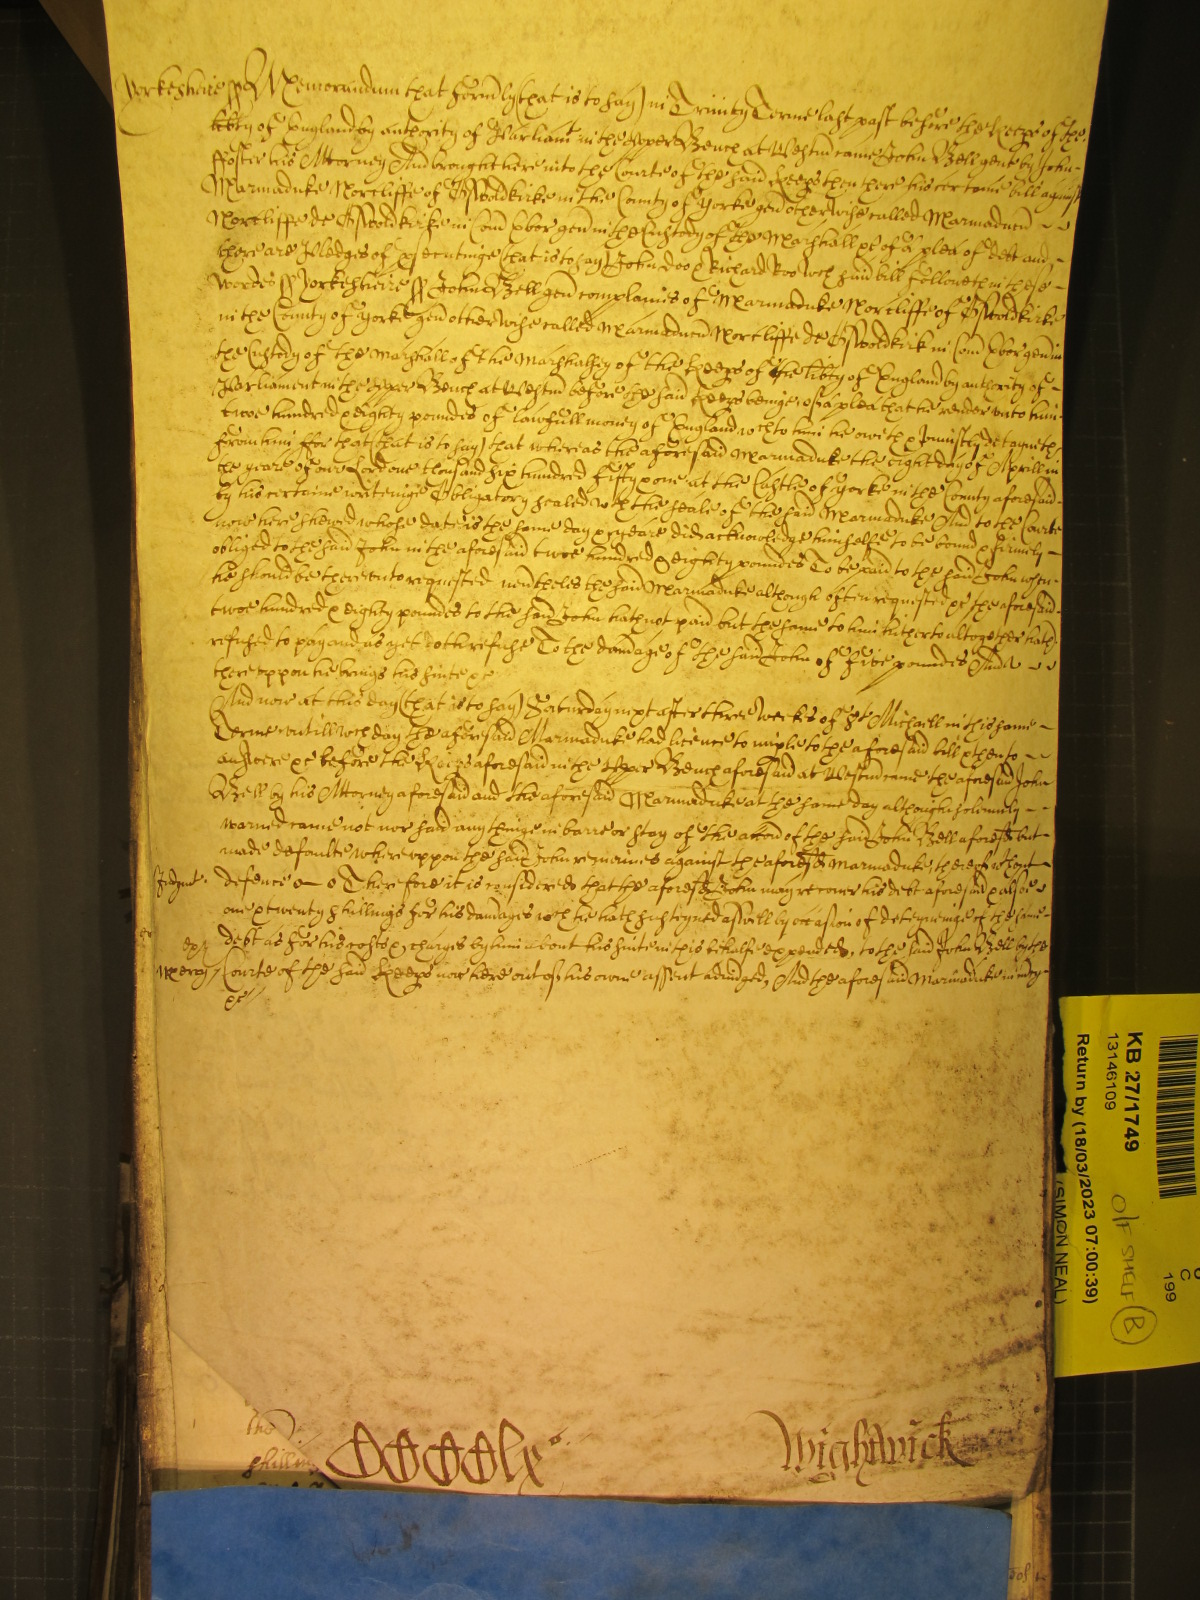 Yorkeshire ss Memorandum that formly (that is to say) in Trinity Terme last past before the Keeps of the
libty of England by authority of Parliamt in the upper Bench at Westm came John Bell gent by John
ffoster his Attorney And brought here into the Courte of the said Keeps then there his certaine bill against
Marmaduke Norcliffe of Oswoldkirke in the County of Yorke gen otherwise called Marmaducu
Norcliffe de Oswoldkirke in Com Ebor gen in the Custody of the Marshall &c of a plea of debt and
there are Pledges of psecutinge that is to say John Doo & Richard Roo wch said bill followeth in these
wordes ss Yorkeshiere ss John Bell gen complaines of Marmaduke Norcliffe of Oswoldkirke
in the County of Yorke gen otherwise called Marmaducu Norcliffe de Oswoldkirk in Com Ebor gen in
the Custody of the Marshall of the Marshalsey of the Keeps of the libty of England by authority of
Parliament in the upper Bench at Westm before the said Keeps beinge of a plea that he render unto him
twoe hundred & eighty poundes of lawfull money of England wch to him he oweth & uniustly deteyneth
from him for that (that is to say) that whereas the aforesaid Marmaduke the eight day of Aprill in
the yeare of our Lord one thousand six hundred fifty one at the Castle of Yorke in the County aforesaid
by his certaine writeinge Obligatory sealed wth the seale of the said Marmaduke And to the Courte
now here shewed whose date is the same day & yeare did acknowledge himselfe to be bound & firmely
obliged to the said John in the aforesaid twoe hundred & eighty poundes To be paid to the said John when
he should be thereunto requested nevtheles the said Marmaduke although often requested &c the aforesaid
twoe hundred & eighty poundes to the said John hath not paid but the same to him hitherto altogether hath
refused to pay and as yet doth refuse To the damage of the said John of five poundes And
thereuppon he brings his suite &c
And now at this day (that is to say) Saturday next after three weekes of St Michaell in this same
Terme untill wch day the aforesaid Marmaduke had licence to imple to the aforesaid bill & then to
answere &c before the Keeps aforesaid in the upper Bench aforesaid at Westm came the aforesaid John
Bell by his Attorney aforesaid and the aforesaid Marmaduke at the same day although solemnely
warned came not nor said any thinge in barre or stay of the accon of the said John Bell aforesd but
made defaulte whereuppon the said John remaines against the aforesd Marmaduke therein without
Judgmt
defence Therefore it is considered that the aforesd John may recover his debt aforesaid & alsoe
one & twenty shillings for his damages wch he hath susteyned aswell by occasion of deteyneinge of the same
debt as for his costs & charges by him about his suite in this behalfe expended, to the said John Bell by the
Mercy Courte of the said Keeps now here out of his owne assent adiudged, And the aforesaid Marmaduke in mcy
&c
Wightwick
shilling
KB 27/1749
13146109
Return by (18/03/2023 07:00:39)
(SIMON NEAL)
O/F SHELF B
C
199